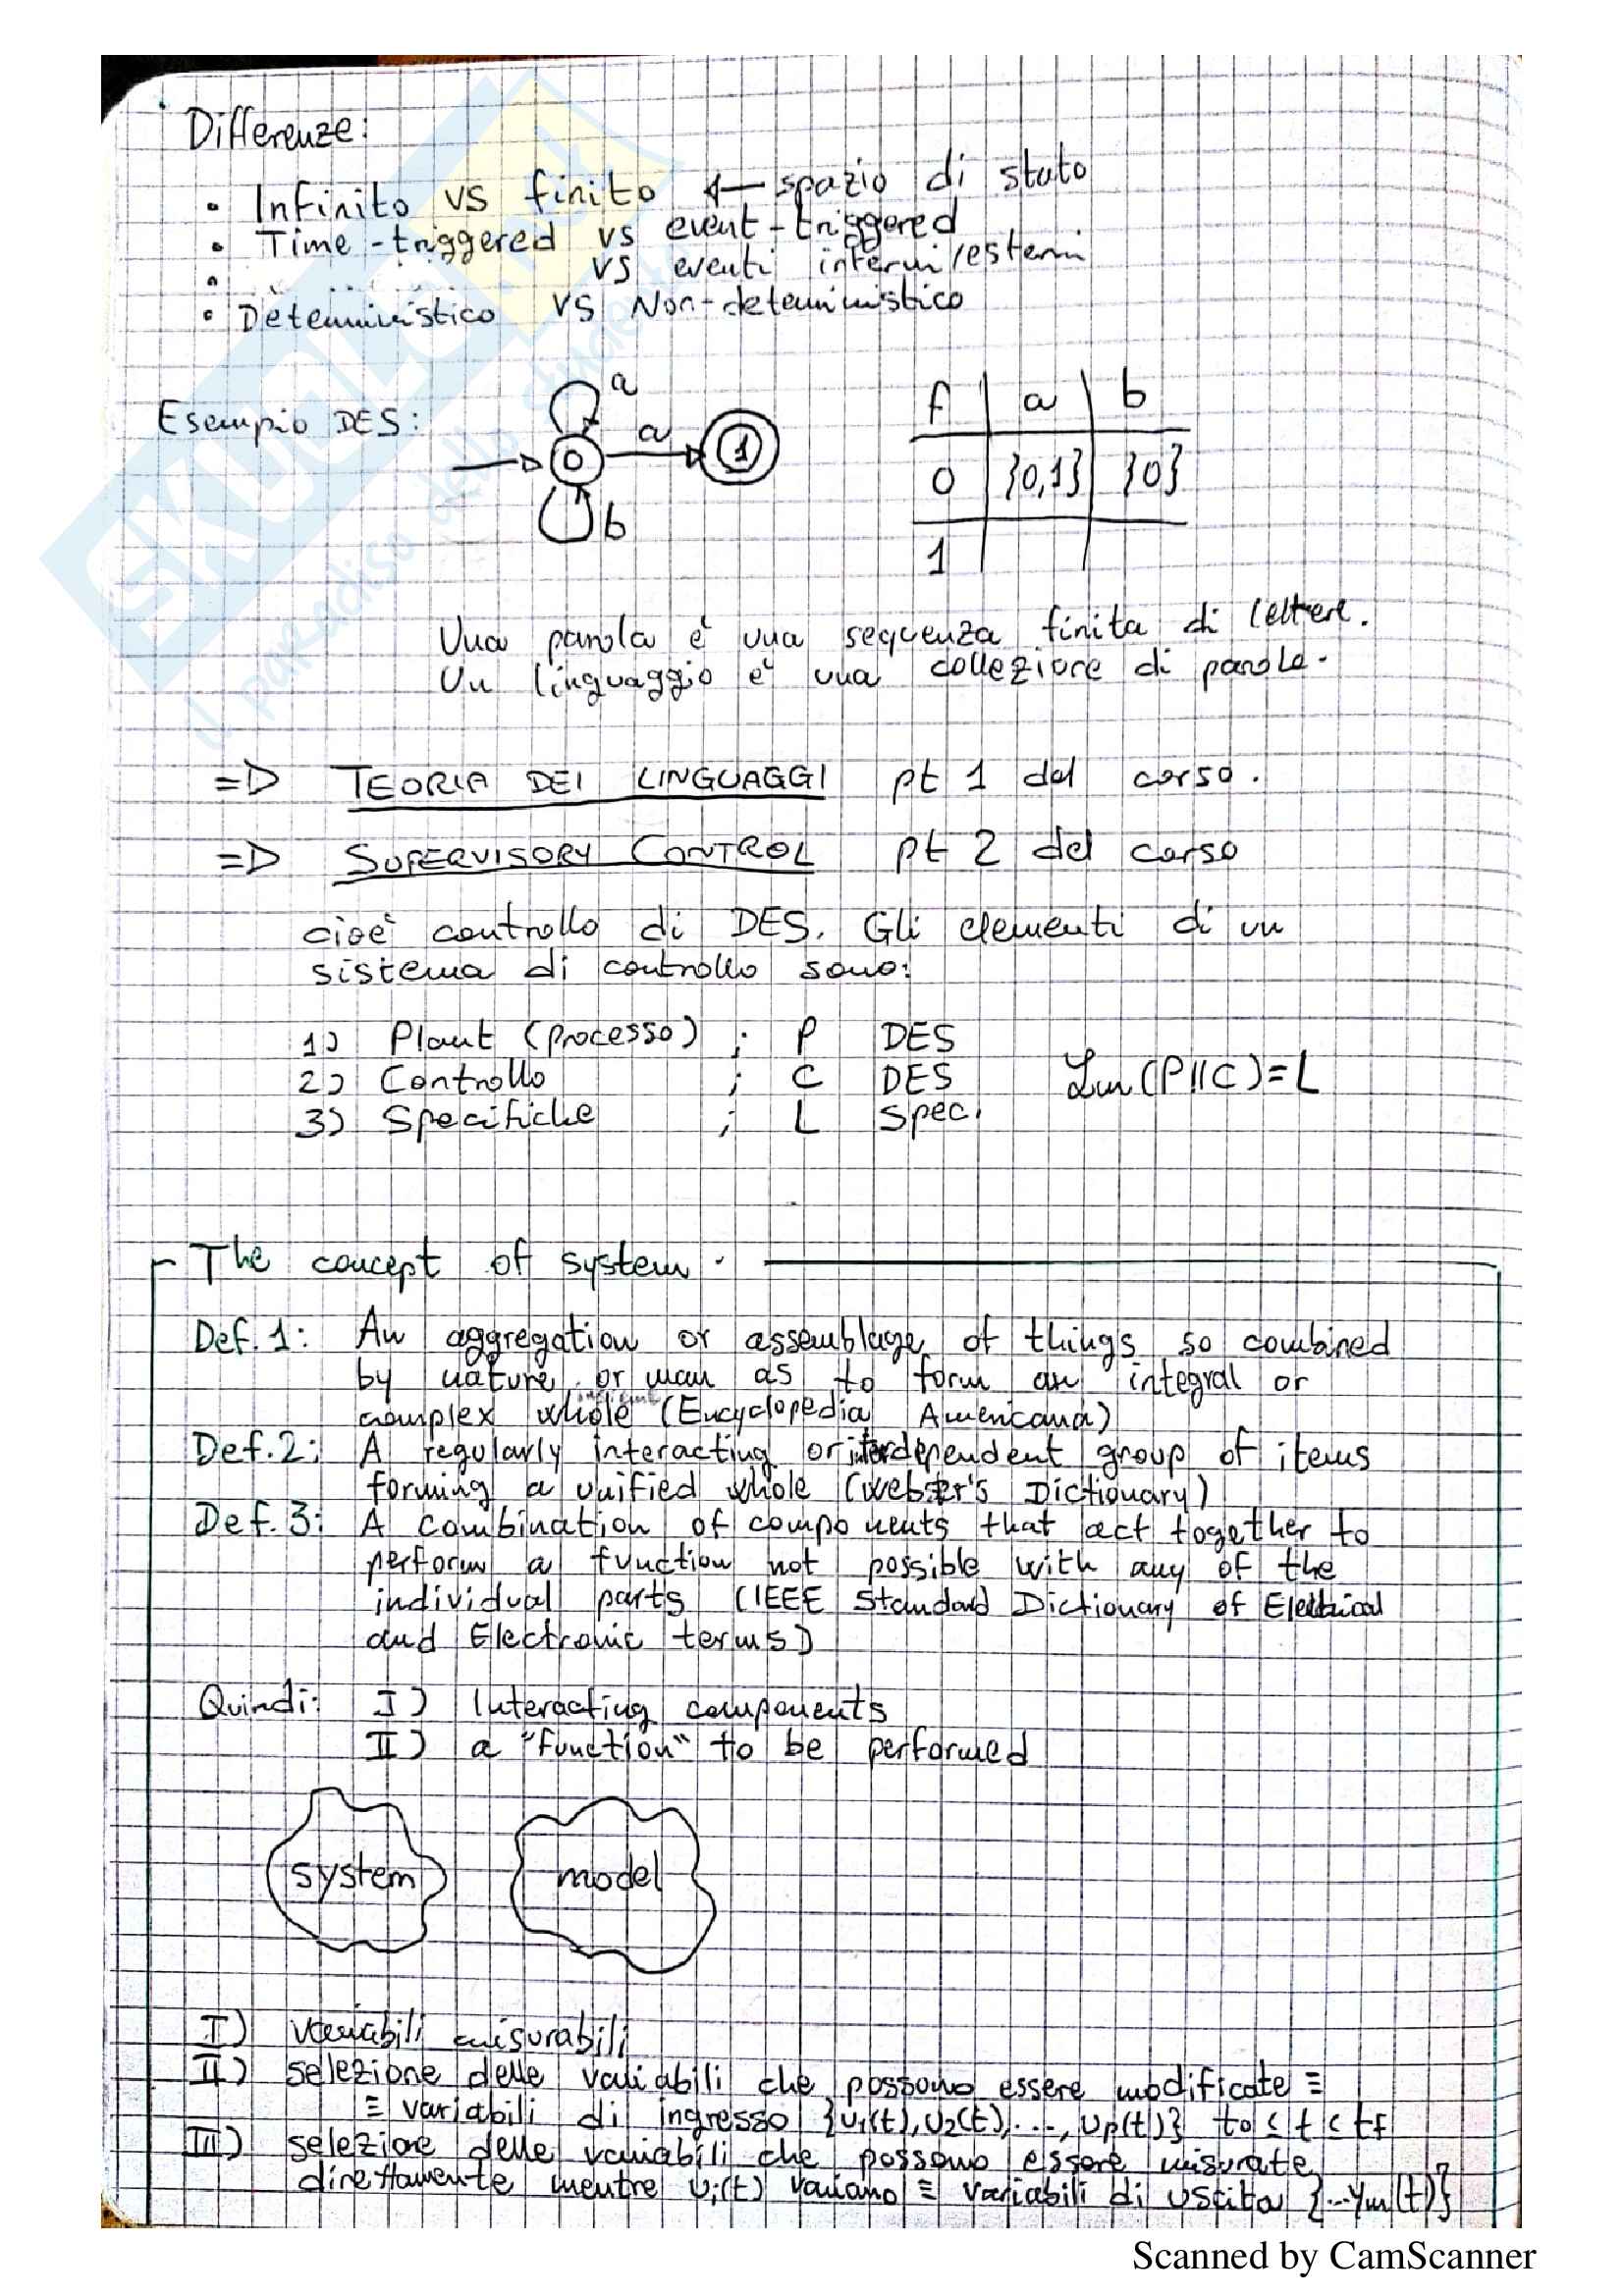 Differenze:
• Infinito vs finito ← spazio di stato
• Time-triggered vs event-triggered
• vs eventi interni/esterni
• Deterministico vs Non-deterministico
Esempio DES:
a
0 a 1
b
f a b
0 {0,1} {0}
1
Una parola è una sequenza finita di lettere.
Un linguaggio è una collezione di parole.
=> TEORIA DEI LINGUAGGI pt 1 del corso.
=> SUPERVISORY CONTROL pt 2 del corso
cioè controllo di DES. Gli elementi di un
sistema di controllo sono:
1) Plant (processo) ; P DES
2) Controllo ; C DES Lm(P||C)=L
3) Specifiche ; L Spec.
The concept of system.
Def.1: An aggregation or assemblage of things so combined
by nature or man as to form an integral or
complex whole (Encyclopedia Americana)
Def.2: A regularly interacting or interdependent group of items
forming a unified whole (Webster's Dictionary)
Def.3: A combination of components that act together to
perform a function not possible with any of the
individual parts (IEEE Standard Dictionary of Electrical
and Electronic terms)
Quindi: I) Interacting components
II) a "function" to be performed
system model
I) variabili misurabili
II) selezione delle variabili che possono essere modificate ≡
≡ variabili di ingresso {u1(t), u2(t), ..., up(t)} to ≤ t ≤ tf
III) selezione delle variabili che possono essere misurate
direttamente mentre ui(t) variano ≡ variabili di uscita {...ym(t)}
Scanned by CamScanner
SKUOLA.net
il paradiso dello studente